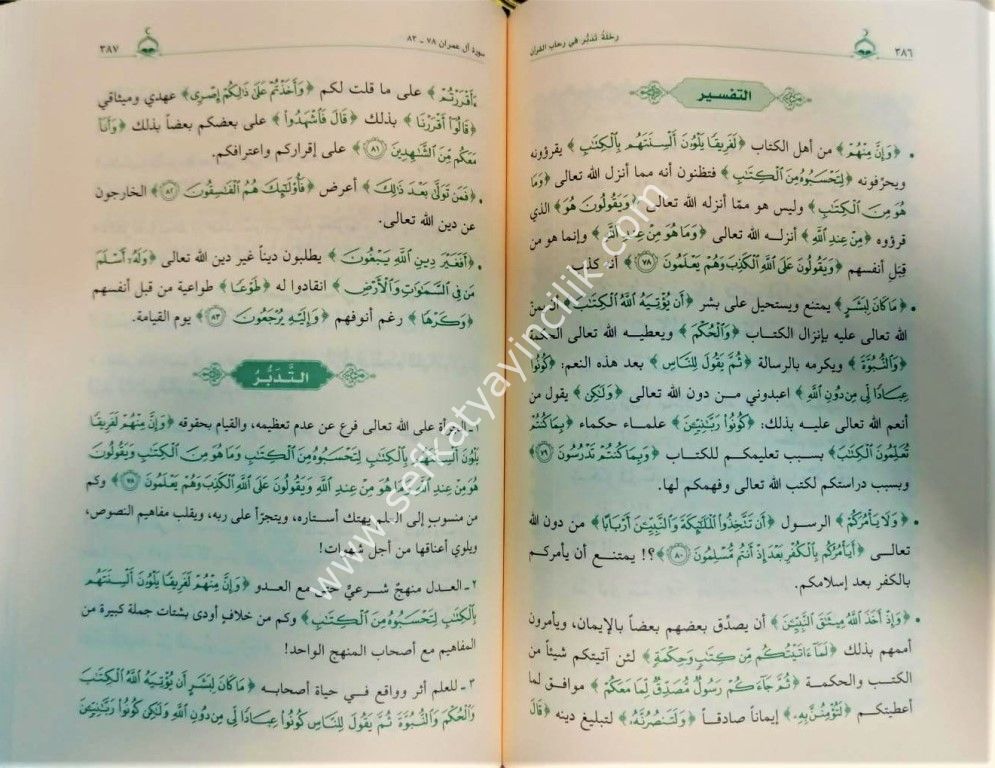 ٣٨٦
رحلة تدبُّر في رحاب القرآن
التفسير
• ﴿وَإِنَّ مِنْهُمْ﴾ من أهل الكتاب ﴿لَفَرِيقًا يَلْوُۥنَ أَلْسِنَتَهُم بِالْكِتَٰبِ﴾ يقرؤونه
ويحرّفونه ﴿لِتَحْسَبُوهُ مِنَ الْكِتَٰبِ﴾ فتظنون أنه مما أنزل الله تعالى ﴿وَمَا
هُوَ مِنَ الْكِتَٰبِ﴾ وليس هو ممّا أنزله الله تعالى ﴿وَيَقُولُونَ هُوَ﴾ الذي
قرؤوه ﴿مِنْ عِندِ اللَّهِ﴾ أنزله الله تعالى ﴿وَمَا هُوَ مِنْ عِندِ اللَّهِ﴾ وإنما هو من
قِبَل أنفسهم ﴿وَيَقُولُونَ عَلَى اللَّهِ الْكَذِبَ وَهُمْ يَعْلَمُونَ ٧٨﴾ أنه كذب
• ﴿مَا كَانَ لِبَشَرٍ﴾ يمتنع ويستحيل على بشر ﴿أَن يُؤْتِيَهُ اللَّهُ الْكِتَٰبَ﴾ أن يمن
الله تعالى عليه بإنزال الكتاب ﴿وَالْحُكْمَ﴾ ويعطيه الله تعالى الحكمة
﴿وَالنُّبُوَّةَ﴾ ويكرمه بالرسالة ﴿ثُمَّ يَقُولَ لِلنَّاسِ﴾ بعد هذه النعم: ﴿كُونُوا
عِبَادًا لِّي مِن دُونِ اللَّهِ﴾ اعبدوني من دون الله تعالى ﴿وَلَٰكِن﴾ يقول من
أنعم الله تعالى عليه بذلك: ﴿كُونُوا رَبَّٰنِيِّۦنَ﴾ علماء حكماء ﴿بِمَا كُنتُمْ
تُعَلِّمُونَ الْكِتَٰبَ﴾ بسبب تعليمكم للكتاب ﴿وَبِمَا كُنتُمْ تَدْرُسُونَ ٧٩﴾
وبسبب دراستكم لكتب الله تعالى وفهمكم لها.
• ﴿وَلَا يَأْمُرَكُمْ﴾ الرسول ﴿أَن تَتَّخِذُوا الْمَلَٰٓئِكَةَ وَالنَّبِيِّۦنَ أَرْبَابًا﴾ من دون الله
تعالى ﴿أَيَأْمُرُكُم بِالْكُفْرِ بَعْدَ إِذْ أَنتُم مُّسْلِمُونَ ٨٠﴾؟! يمتنع أن يأمركم
بالكفر بعد إسلامكم.
• ﴿وَإِذْ أَخَذَ اللَّهُ مِيثَٰقَ النَّبِيِّۦنَ﴾ أن يصدّق بعضهم بعضاً بالإيمان، ويأمرون
أممهم بذلك ﴿لَمَآ ءَاتَيْتُكُم مِّن كِتَٰبٍ وَحِكْمَةٍ﴾ لئن آتيتكم شيئاً من
الكتب والحكمة ﴿ثُمَّ جَآءَكُمْ رَسُولٌ مُّصَدِّقٌ لِّمَا مَعَكُمْ﴾ موافق لما
أعطيتكم ﴿لَتُؤْمِنُنَّ بِهِۦ﴾ إيماناً صادقاً ﴿وَلَتَنصُرُنَّهُۥ﴾ لتبليغ دينه ﴿قَالَ
سورة آل عمران ٧٨ - ٨٣
٣٨٧
ءَأَقْرَرْتُمْ﴾ على ما قلت لكم ﴿وَأَخَذْتُمْ عَلَىٰ ذَٰلِكُمْ إِصْرِى﴾ عهدي وميثاقي
﴿قَالُوٓا أَقْرَرْنَا﴾ بذلك ﴿قَالَ فَاشْهَدُوا﴾ على بعضكم بعضاً بذلك ﴿وَأَنَا
مَعَكُم مِّنَ الشَّٰهِدِينَ ٨١﴾ على إقراركم واعترافكم.
• ﴿فَمَن تَوَلَّىٰ بَعْدَ ذَٰلِكَ﴾ أعرض ﴿فَأُولَٰٓئِكَ هُمُ الْفَٰسِقُونَ ٨٢﴾ الخارجون
عن دين الله تعالى.
• ﴿أَفَغَيْرَ دِينِ اللَّهِ يَبْغُونَ﴾ يطلبون ديناً غير دين الله تعالى ﴿وَلَهُۥٓ أَسْلَمَ
مَن فِى السَّمَٰوَٰتِ وَالْأَرْضِ﴾ انقادوا له ﴿طَوْعًا﴾ طواعية من قبل أنفسهم
﴿وَكَرْهًا﴾ رغم أنوفهم ﴿وَإِلَيْهِ يُرْجَعُونَ ٨٣﴾ يوم القيامة.
التَّدَبُّرُ
١ - الجرأة على الله تعالى فرع عن عدم تعظيمه، والقيام بحقوقه ﴿وَإِنَّ مِنْهُمْ لَفَرِيقًا
يَلْوُۥنَ أَلْسِنَتَهُم بِالْكِتَٰبِ لِتَحْسَبُوهُ مِنَ الْكِتَٰبِ وَمَا هُوَ مِنَ الْكِتَٰبِ وَيَقُولُونَ
هُوَ مِنْ عِندِ اللَّهِ وَمَا هُوَ مِنْ عِندِ اللَّهِ وَيَقُولُونَ عَلَى اللَّهِ الْكَذِبَ وَهُمْ يَعْلَمُونَ ٧٨﴾ وكم
من منسوب إلى العلم يهتك أستاره، ويتجرّأ على ربه، ويقلب مفاهيم النصوص،
ويلوي أعناقها من أجل شهوات!
٢ - العدل منهجٌ شرعيٌّ حتى مع العدو ﴿وَإِنَّ مِنْهُمْ لَفَرِيقًا يَلْوُۥنَ أَلْسِنَتَهُم
بِالْكِتَٰبِ لِتَحْسَبُوهُ مِنَ الْكِتَٰبِ﴾ وكم من خلافٍ أودى بشتات جملة كبيرة من
المفاهيم مع أصحاب المنهج الواحد!
٣ - للعلم أثر وواقع في حياة أصحابه ﴿مَا كَانَ لِبَشَرٍ أَن يُؤْتِيَهُ اللَّهُ الْكِتَٰبَ
وَالْحُكْمَ وَالنُّبُوَّةَ ثُمَّ يَقُولَ لِلنَّاسِ كُونُوا عِبَادًا لِّي مِن دُونِ اللَّهِ وَلَٰكِن كُونُوا رَبَّٰنِيِّۦنَ
www.serkatyayincilik.com